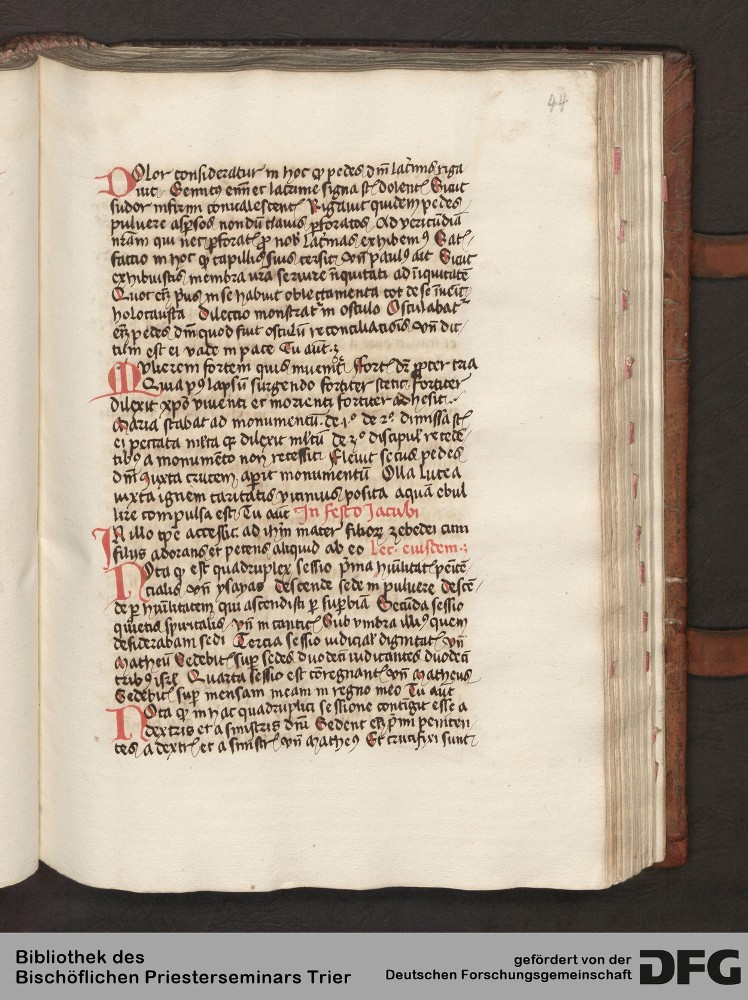 44
Dolor consideratur in hoc q̛ pedes dñi lac͛mis riga
uit Gemitꝰ em̄ et lacrime signa st̄ dolent̄ Sicut
sudor infirm conualescent̄ Rigauit quidem pedes
puluere asp̱sos nondū clauis ꝑforatos
nr̄am qui nec ꝑforat̄ ꝓ nob̄ lac͛mas exhibemꝰ Sat
factio in hoc q̛ capillis suis tersit vn̄ paulꝰ ait Sicut
exhibuistis membra vr̄a seruire īiquitati ad īiquitatē
Quot em̄ in se habuit oblectamenta tot de se īuēit
holocausta Dilectio monstrat̄ in osculo Osculabat̄
em̄ pedes dñi quod fuit osculū reconciliatiōis vn̄ dic
tum est ei vade in pace Tu aūt
Mulierem fortem quis inueniet Fort̄ dr̄ ꝓpter tria
Quia pꝰ lapsū surgendo fortiter stetit Fortiter
dilexit xp̄o viuenti et morienti fortiter adhesit
Maria stabat ad monumentū de 1º de 2º dimissa st̄
ei peccata ml̄ta q̛ dilexit ml̄tū de 3º discipul̄ recedē
tibꝰ a monumēto non recessit Fleuit secus pedes
dñi Iuxta crucem aꝑit monumentū Olla lutea
iuxta ignem caritatis vicinius posita aquā ebul
lire compulsa est Tu aūt In festo Jacobi
In illo tp̄e accessit ad ih̄m mater filioꝝ zebedei cum
filiis adorans et petens aliquid ab eo Lec̄ eiusdem
Nota q̛ est quadruplex sessio p̄ma hūilitat̄ penitē
cialis vn̄ ysayas Descende sede in puluere Descē
de ꝑ hūilitatem qui ascendisti ꝑ suꝑbiā Secūda sessio
quietis spiritalis vn̄ in cantic̄ Sub vmbra illiꝰ quem
desiderabam sedi Tercia sessio iudicial̄ dignitat̄ vn̄
Matheū Sedebit̄ suꝑ sedes duodeci iudicantes duodeci
tribꝰ isrl̄ Quarta sessio est cōregnant̄ vn̄ Matheus
Sedebit̄ suꝑ mensam meam in regno meo Tu aūt
Nota q̛ in hac quadruplici sessione contigit esse a
dextris et a sinistris dñi Sedent em̄ p̄mi peniten
tes a dextr̄ et a sinistr̄ vn̄ Matheꝰ Et crucifixi sunt
Bibliothek des
Bischöflichen Priesterseminars Trier
gefördert von der
Deutschen Forschungsgemeinschaft
DFG